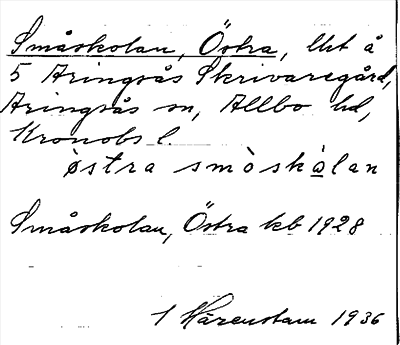 Småskolan, Östra, lht å
5 Aringsås Skrivaregård,
Aringsås sn, Allbo hd,
Kronobs l.
östra smòskàlan
Småskolan, Östra kb 1928
1 Härenstam 1936